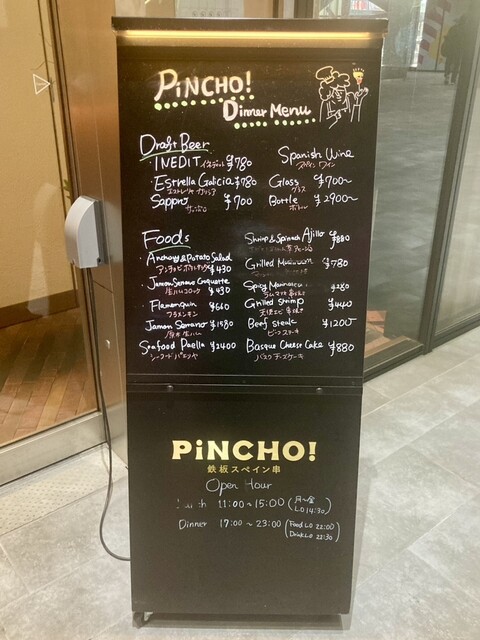 PiNCHO!
Dinner Menu
Draft Beer
INEDIT ¥780
Estrella Galicia ¥780
エストレリャ ガリシア
Sapporo ¥700
サッポロ
Spanish Wine
スペイン ワイン
Glass ¥700~
グラス
Bottle ¥2900~
ボトル
Foods
Anchovy & Potato Salad
アンチョビポテトサラダ ¥430
Jamon Serrano Croquette
生ハムコロッケ ¥430
Flamenquin ¥660
フラメンキン
Jamon Serrano ¥1580
生ハム
Seafood Paella ¥2400
シーフード パエリヤ
Shrimp & Spinach Ajillo ¥880
Grilled Mushroom ¥780
Spicy ¥280
Grilled Shrimp ¥440
天使エビ串焼き
Beef steak ¥1200
ビーフステーキ
Basque Cheese Cake ¥880
バスク チーズケーキ
PiNCHO!
鉄板スペイン串
Open Hour
Lunch 11:00~15:00 (月~金 LO 14:30)
Dinner 17:00~23:00 (Food LO 22:00 Drink LO 22:30)